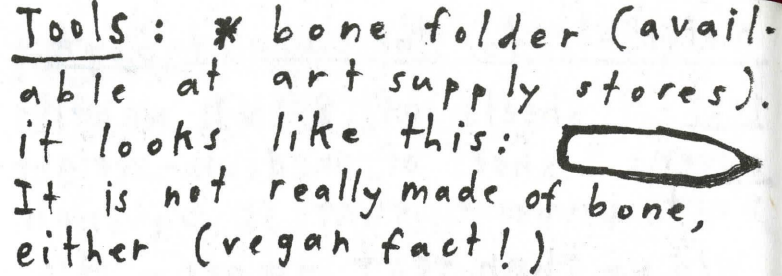 Tools: * bone folder (avail-
able at art supply stores).
it looks like this:
It is not really made of bone,
either (vegan fact!)